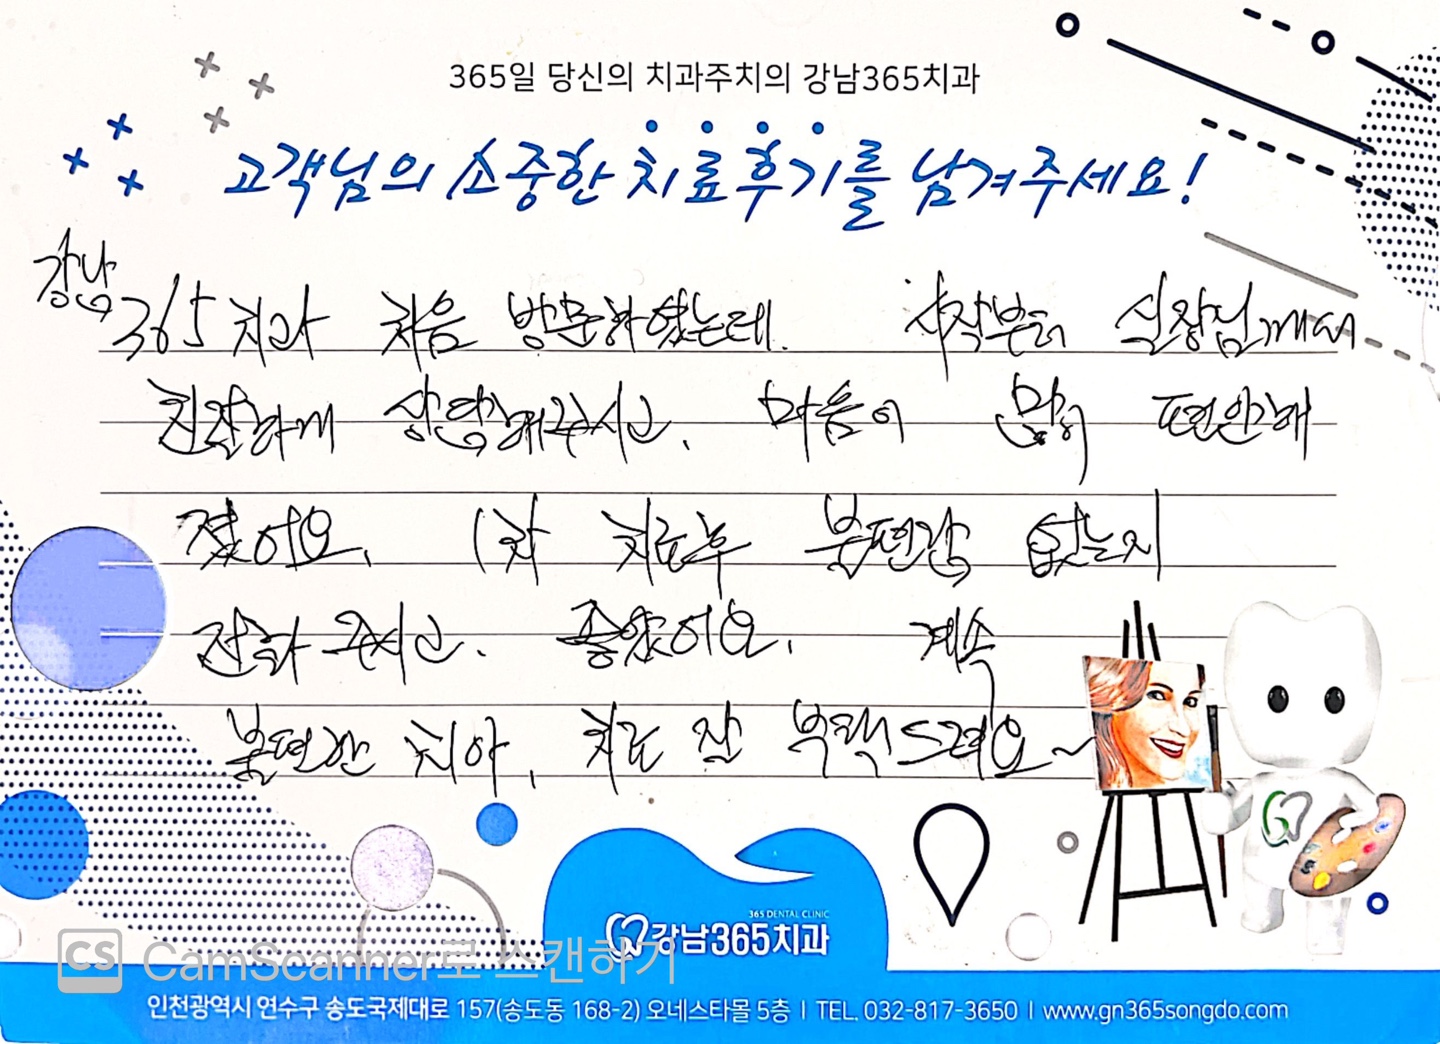 365일 당신의 치과주치의 강남365치과
고객님의 소중한 치료후기를 남겨주세요!
강남
365 치과 처음 방문하였는데. 시작부터 실장님께서
친절하게 상담해주시고, 마음이 많이 편안해
졌어요. 1차 치료후 불편감 없는지
전화 주시고. 좋았어요. 계속
불편한 치아, 치료 잘 부탁드려요~
365 DENTAL CLINIC
강남365치과
CS CamScanner로 스캔하기
인천광역시 연수구 송도국제대로 157(송도동 168-2) 오네스타몰 5층 | TEL. 032-817-3650 | www.gn365songdo.com